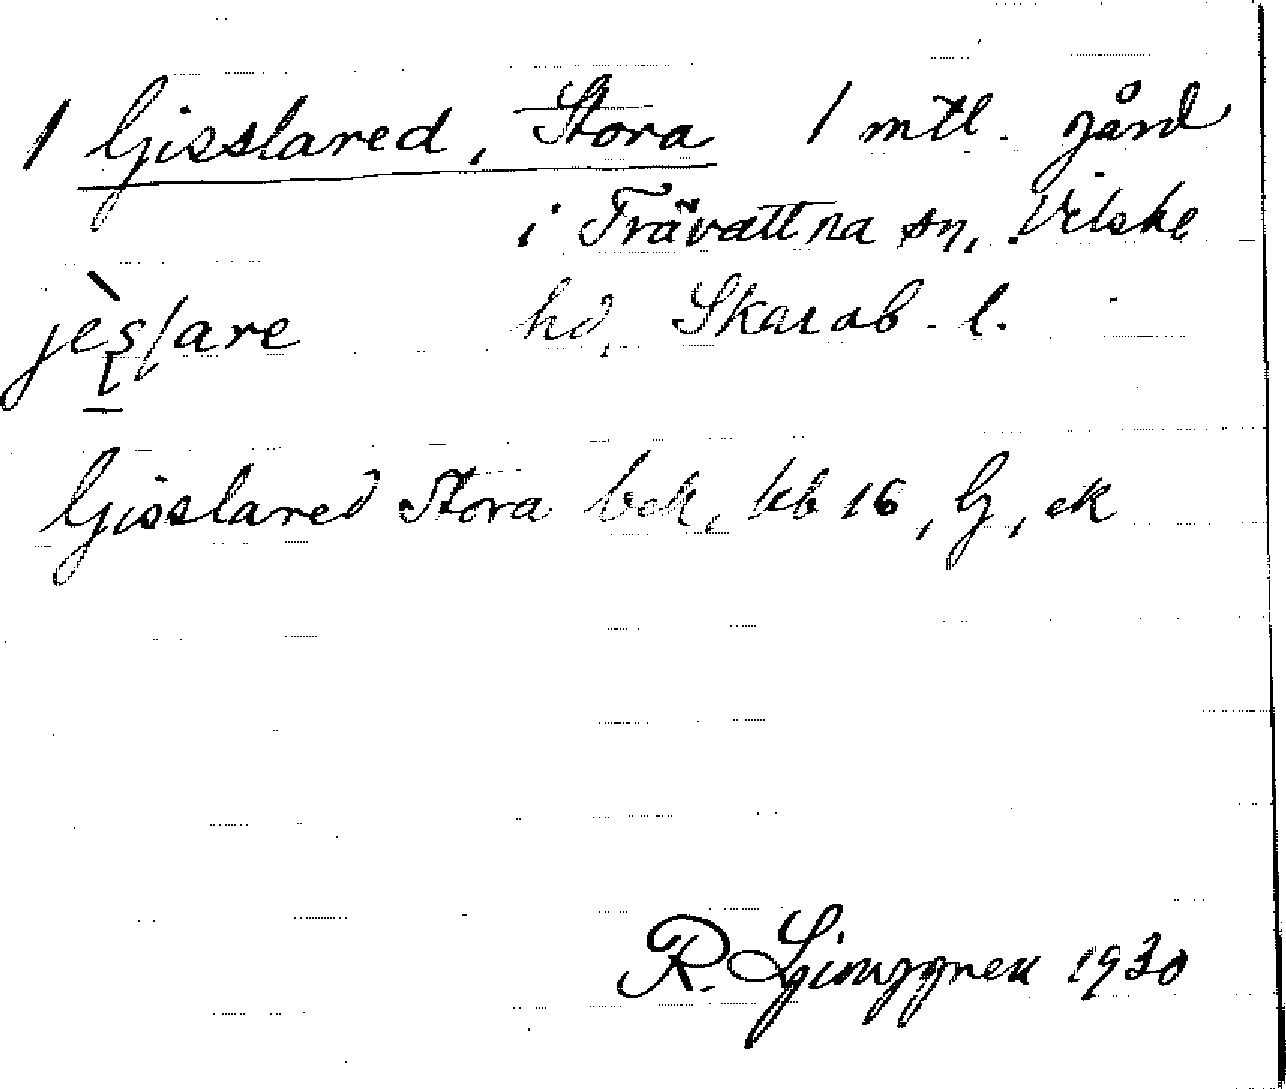 1 Gisslared, Stora 1 mtl. gård
i Trävattna sn, Vilske
jèslare hd, Skarab. l.
Gisslared Stora bek, kb 16, G, ek
R. Ljunggren 1930